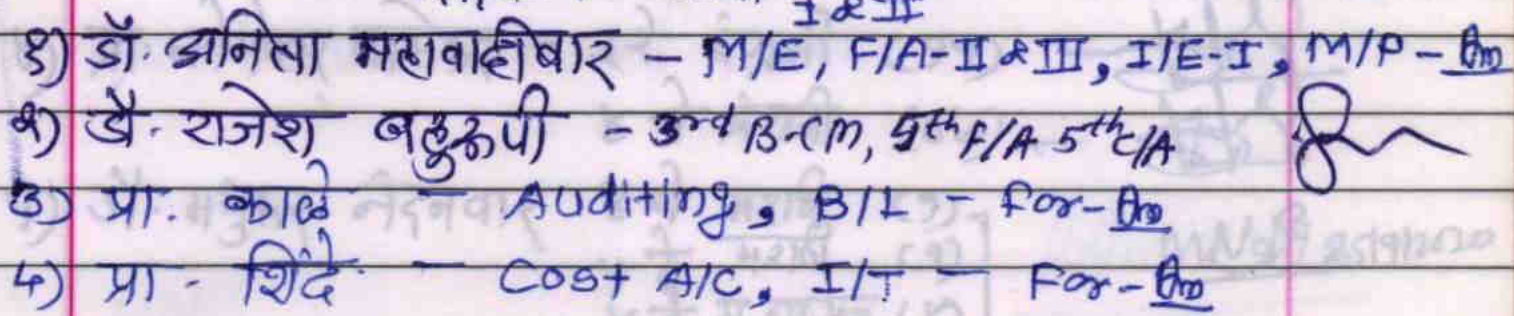 I & II
१) डॉ. अनिता महावाहीवार - M/E, F/A-II & III, I/E-I, M/P -
२) डॉ. राजेश बहुरूपी - 3rd B.CM, 5th F/A 5th C/A
३) प्रा. काळे - Auditing, B/L - for-
४) प्रा. शिंदे - Cost A/C, I/T - For-